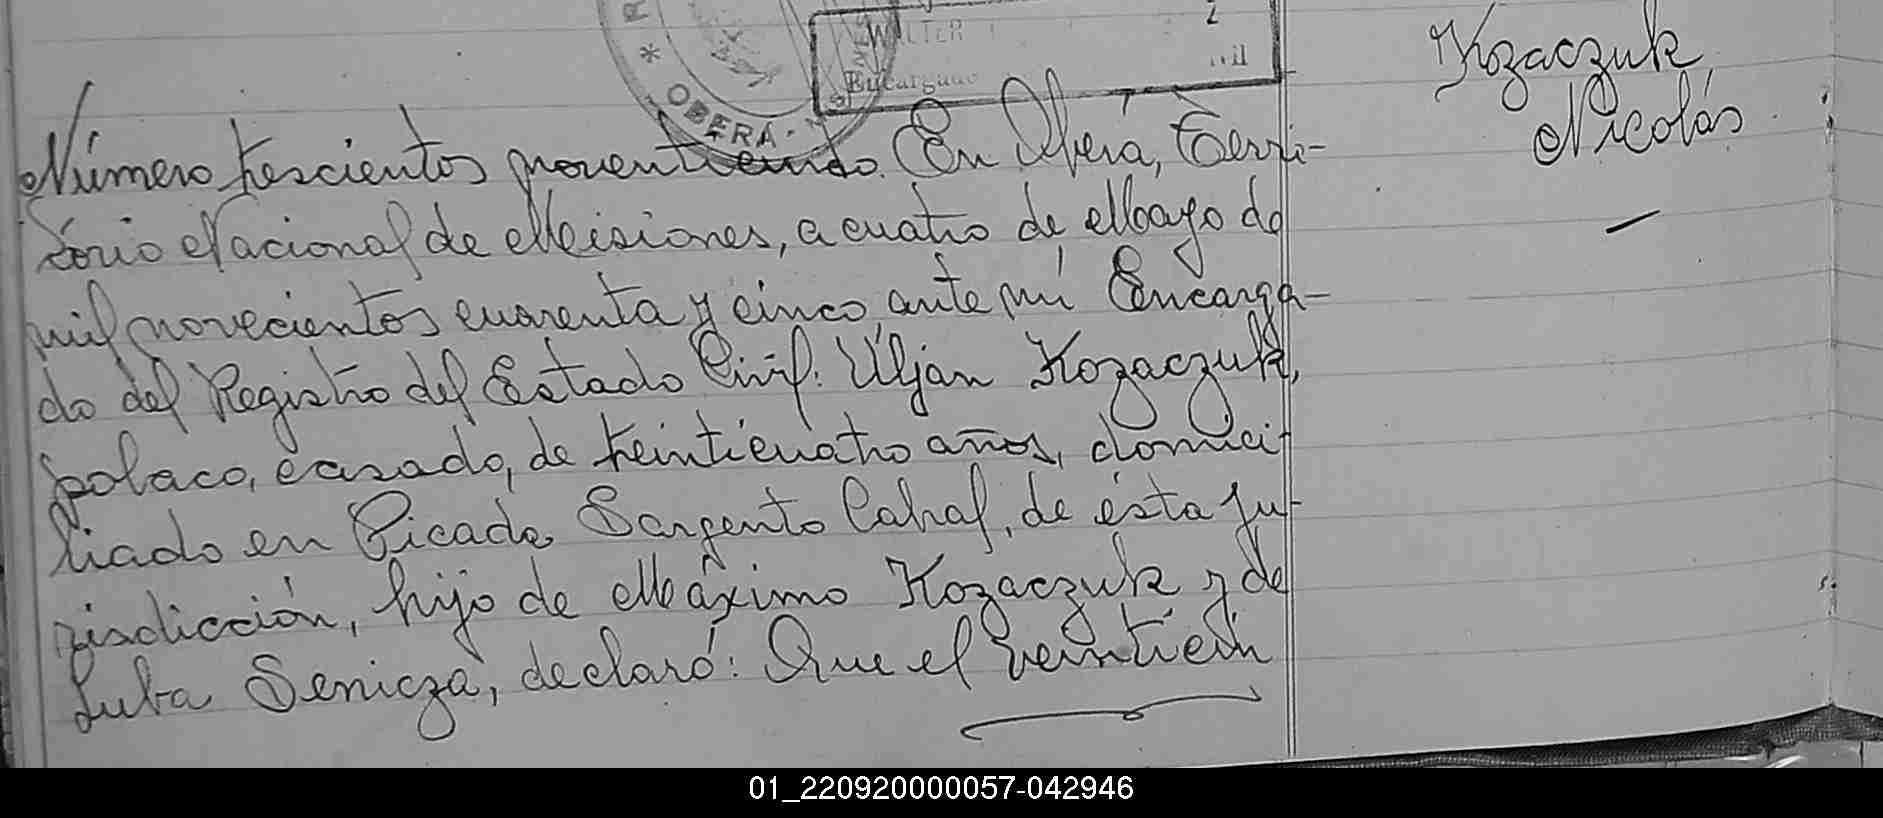 R * OBERÁ -
WALTER
Encargado
Kozaczuk
Nicolás
Número trescientos noventiuno. En Oberá, Terri-
torio Nacional de Misiones, a cuatro de Mayo de
mil novecientos cuarenta y cinco, ante mí Encarga-
do del Registro del Estado Civil: Uljan Kozaczuk,
polaco, casado, de treinticuatro años, domici
liado en Picada Sargento Cabral, de ésta ju-
risdicción, hijo de Máximo Kozaczuk y de
Luba Senicza, declaró: Que el veintiun
01_220920000057-042946